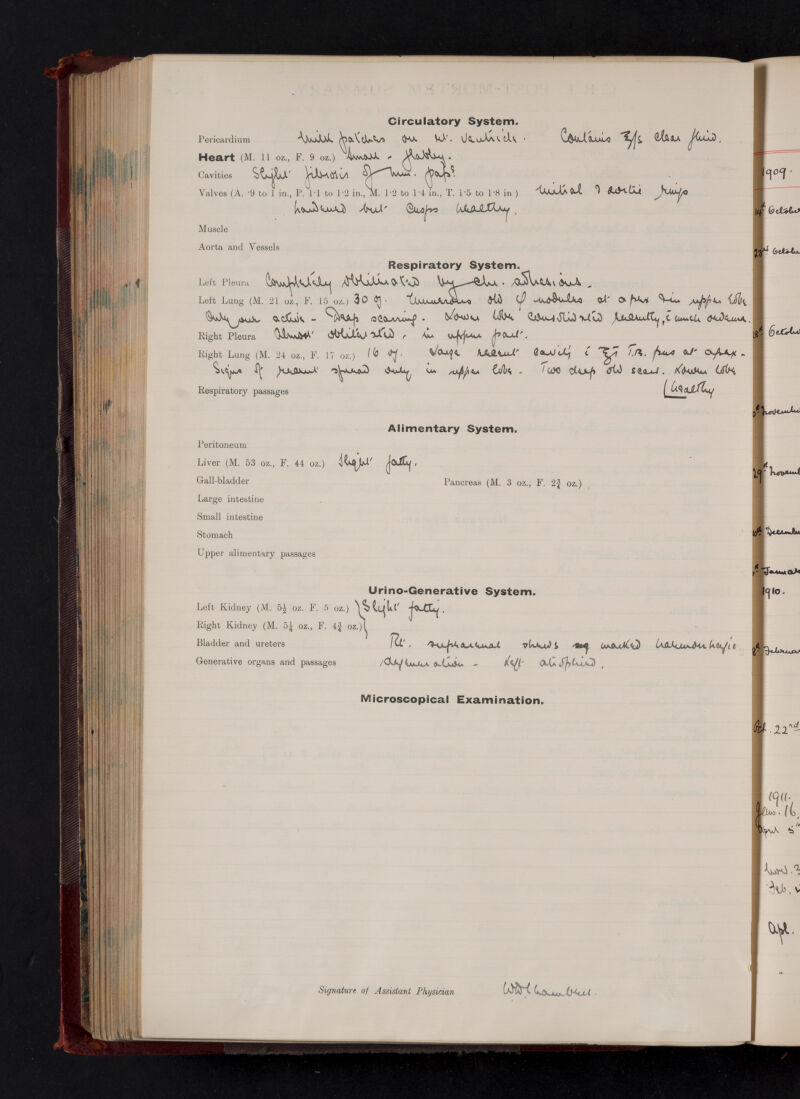 Circulatory System.
Pericardium Milk patches on Rt. Ventricle. Contains ℥/s clear fluid.
Heart (M. 11 oz., F. 9 oz.) Small - flabby.
Cavities Slight fibrosis of mus. pap:
Valves (A. ·9 to 1 in., P. 1·1 to 1·2 in., M. 1·2 to 1·4 in., T. 1·5 to 1·8 in) Mitral & aortic rings
hardened but cusps healthy.
Muscle
Aorta and Vessels
Respiratory System.
Left Pleura Completely obliterated by chr. adhesions.
Left Lung (M. 21 oz., F. 15 oz.) 30 oz. Numerous old nodules at apex & in upper lobe
Only one active - Deep scarring. Lower lobe consolidated recently, c̄ much oedema.
Right Pleura Almost obliterated, in upper part.
Right Lung (M. 24 oz., F. 17 oz.) 16 oz. Large recent cavity c̄ T.B. pus at apex -
Signs of recent spread only in upper lobe - Two deep old scars. Lower lobe
Respiratory passages (healthy
Alimentary System.
Peritoneum
Liver (M. 53 oz., F. 44 oz.) Slight fatty.
Gall-bladder Pancreas (M. 3 oz., F. 2¾ oz.)
Large intestine
Small intestine
Stomach
Upper alimentary passages
Urino-Generative System.
Left Kidney (M. 5½ oz. F. 5 oz.) } Slight fatty.
Right Kidney (M. 5¼ oz., F. 4¾ oz.)
Bladder and ureters Rt. suprarenal shows marked haemorrhagic
Generative organs and passages degeneration - Left atrophied.
Microscopical Examination.
Signature of Assistant Physician
1909.
October
October
October
November
Novem
December
Januar
1910.
Februar
22nd
1911.
16
April 5
Nov. 
Feb.
Apl.